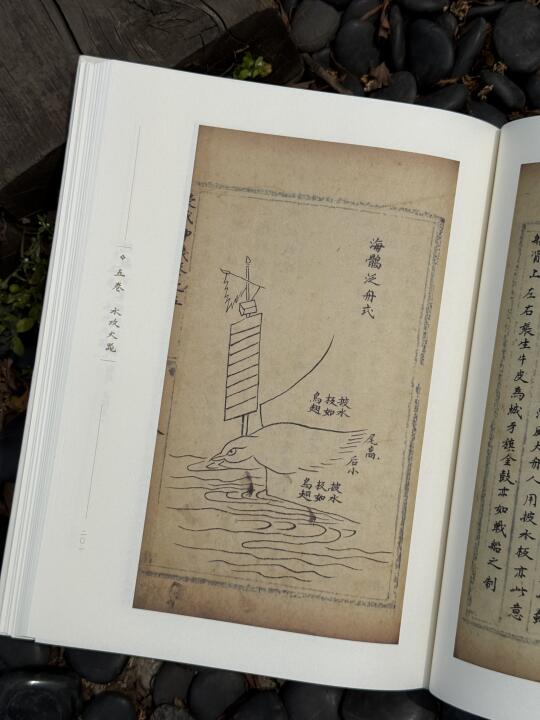 用披水板亦此意
上左右張生牛皮為城牙旗金鼓亦如戰船之制
海鶻泛舟式
披水
板如
鳥翅
尾高
后小
披水
板如
鳥翅
五卷 水攻
二〇一